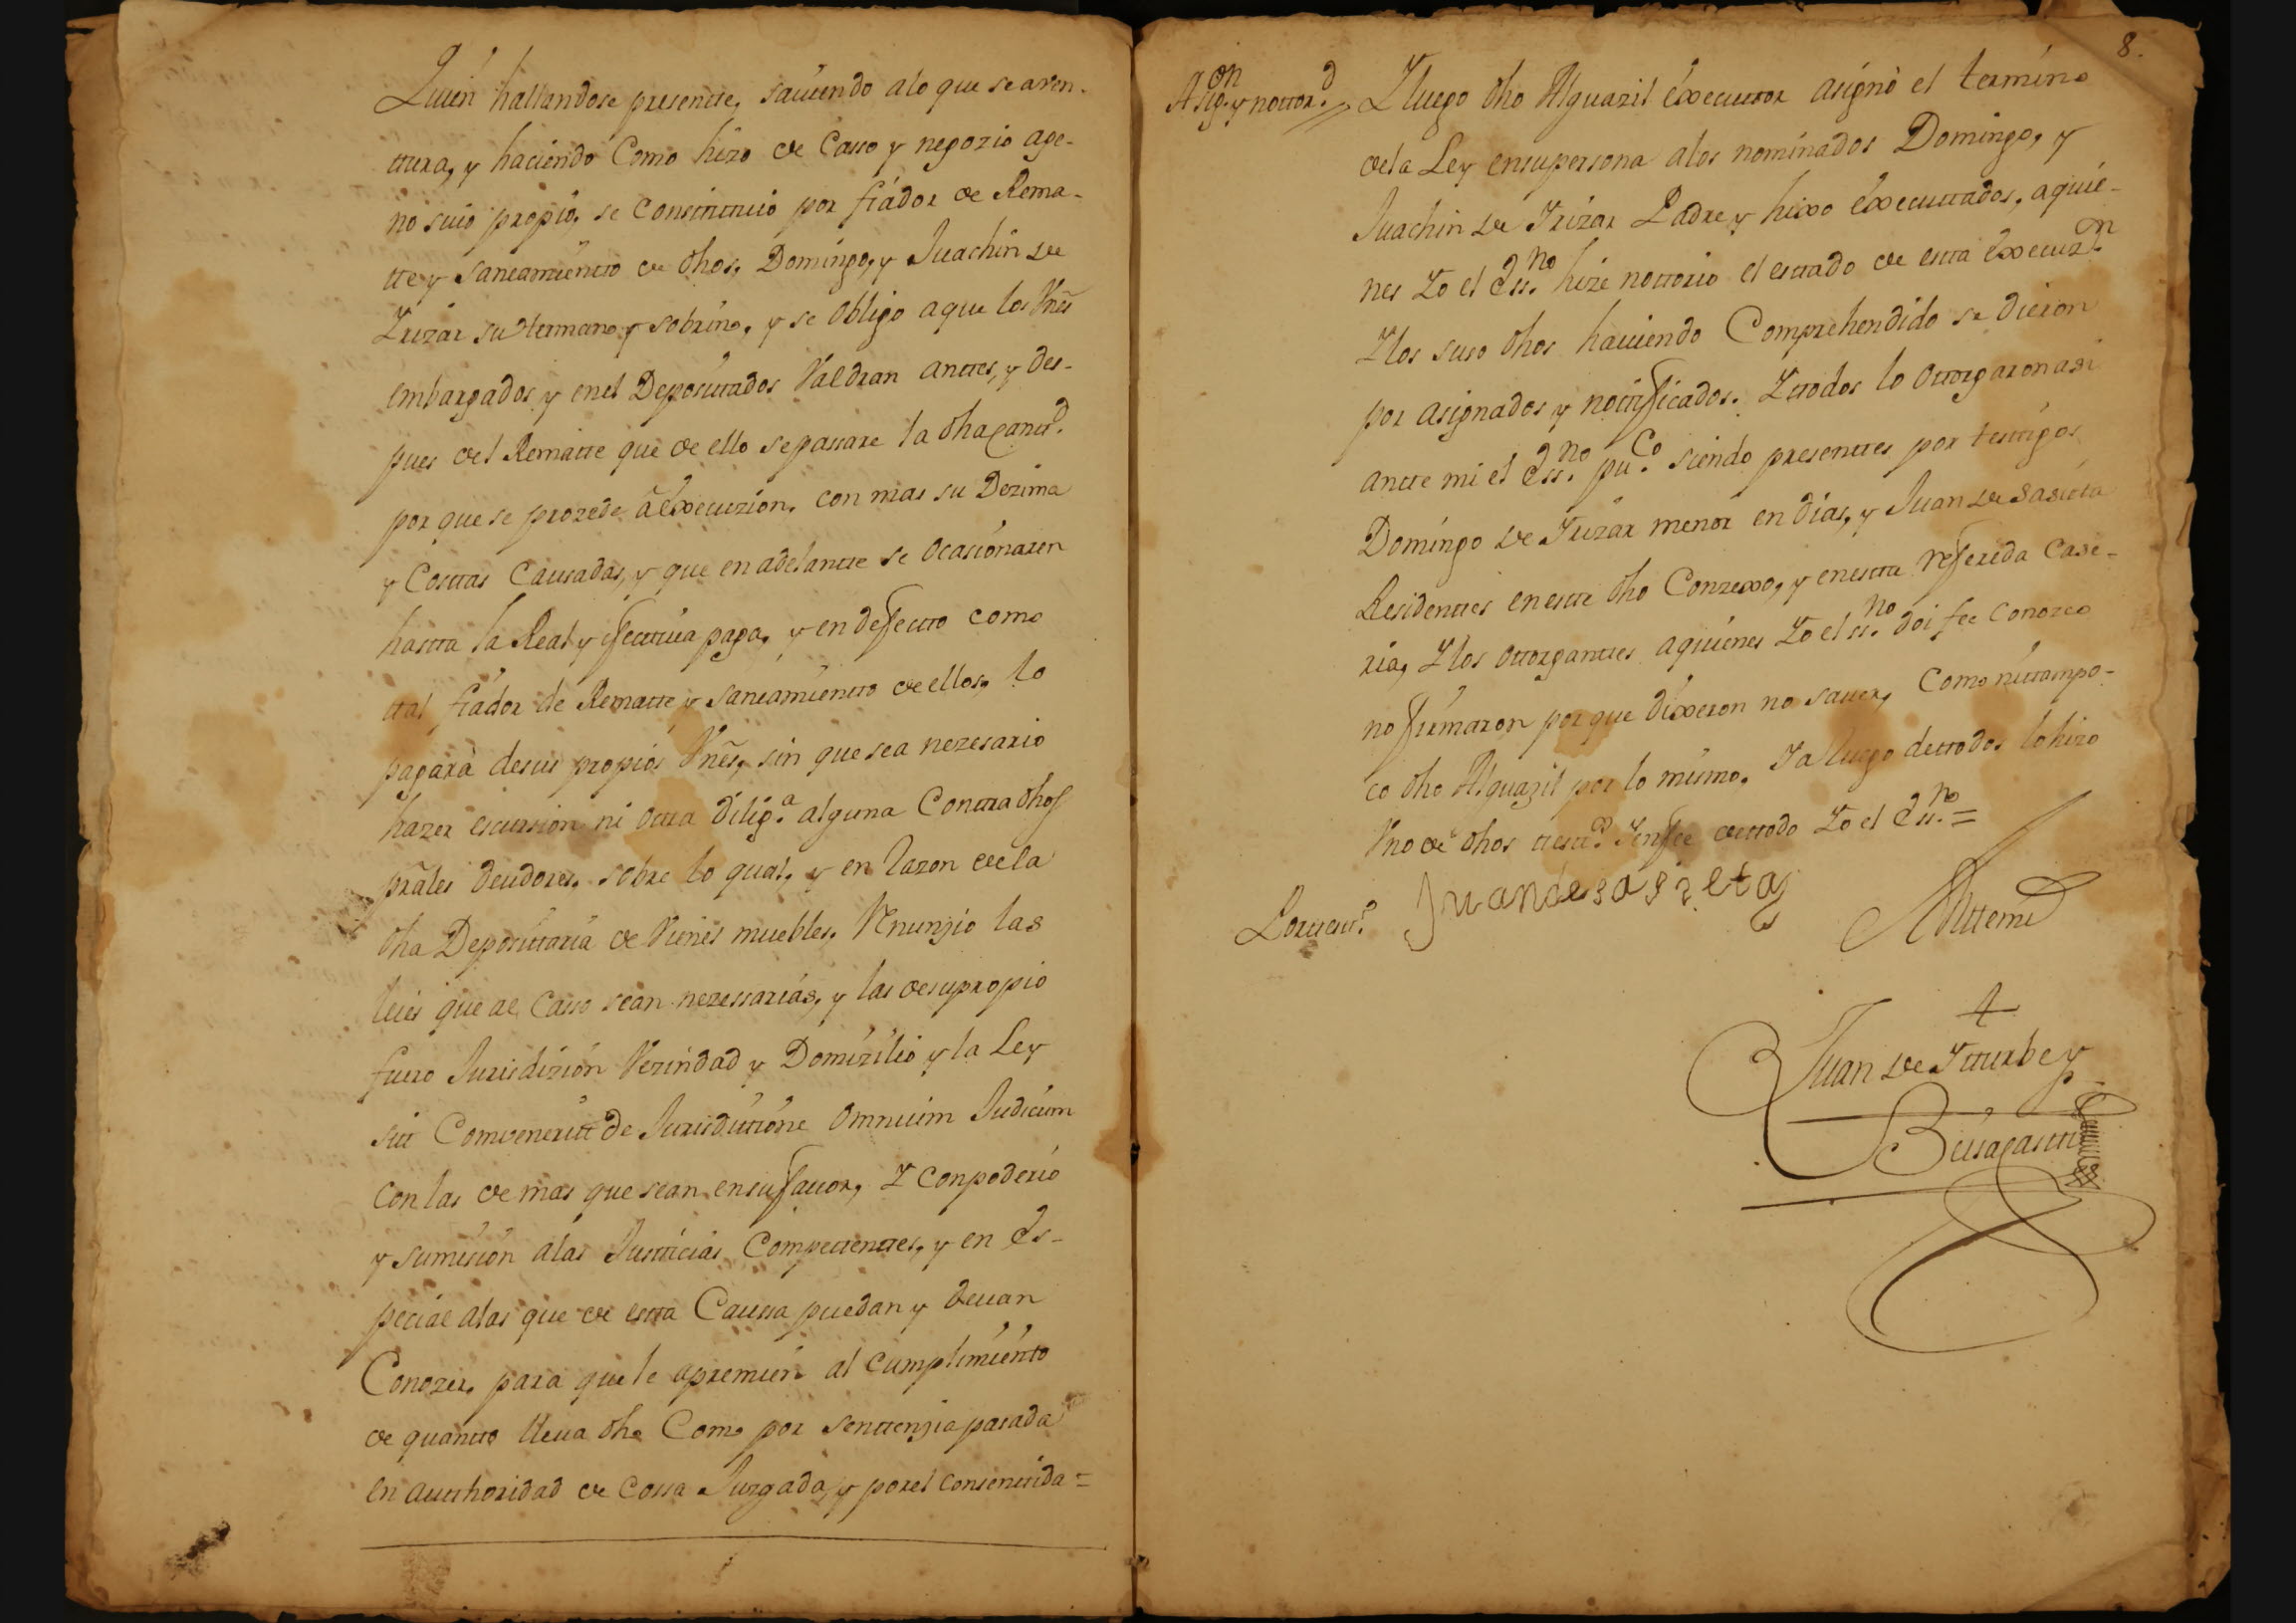 Quien hallandose presentte, saviendo alo que se aven-
ttura, y haciendo Como hizo de Casso y negozio age-
no suio propio, se Constittuió por fiador de Rema-
tte y saneamientto de dhos, Domingo, y Juachin de
Irizar su Hermano y sobrino, y se obligo a que los Vnes
embargados y en el Deposittados Valdran anttes, y des-
pues del Rematte que de ello se passare la dha cantd.
por que se prozede à execuzion, con mas su Dezima
y Costtas Causadas, y que en adelantte se ocasionaren
hastta la Real y efecttiva paga, y en defectto como
ttal fiador de Rematte y saneamientto de ellos, lo
pagarà de sus propios Vnes, sin que sea nezesario
hazer escursion ni ottra dilig.a alguna Conttra dhos
prãles deudores, sobre lo qual, y en Razon de la
dha Deposittaria de Vienes muebles, Renunzio las
leies que al Casso sean nezessarias, y las de su propio
fuero Jurisdizion Vezindad y Domizilio y la Ley
sitt Conveneritt de Jurisdittione Omnium Judicum
con las de mas que sean en su favor, Y con poderio
y sumision a las Justticias Compettenttes, y en Es-
pecial alas que de estta Caussa puedan y devan
Conozer, para que le apremien al cumplimiento
de quantto lleva dho Como por senttenzia pasada
en autthoridad de Cossa Juzgada, y por el consenttida =
8.
Asig.on y nottor.d Y luego dho Alguazil executtor asignò el termino
dela Ley en su persona alos nominados Domingo, y
Juachin de Irizar Padre y hixo executtados, aquie-
nes Yo el Ess.no hize nottorio el esttado de estta execuz.n
Y los suso dhos haviendo Comprehendido se dieron
por asignados y nottificados. Y ttodos lo ottorgaron asi
antte mi el Ess.no pu.co siendo presenttes por testtigos
Domingo de Irizar menor en dias, y Juan de Sasietta
Residenttes en estte dho Conzexo, y en estta referida Case-
ria, Y los ottorganttes aquienes Yo el ss.no doi fee Conozco
no firmaron por que dixeron no saver, Como ni ttampo-
co dho Alguazil por lo mismo. Y a Ruego de ttodos lo hizo
Vno de dhos testt.os Y en fee de ttodo Yo el Ess.no =
Por ttestt.o Juan de sasieta Antte mi
Juan de Itturbe y
Beisagastti